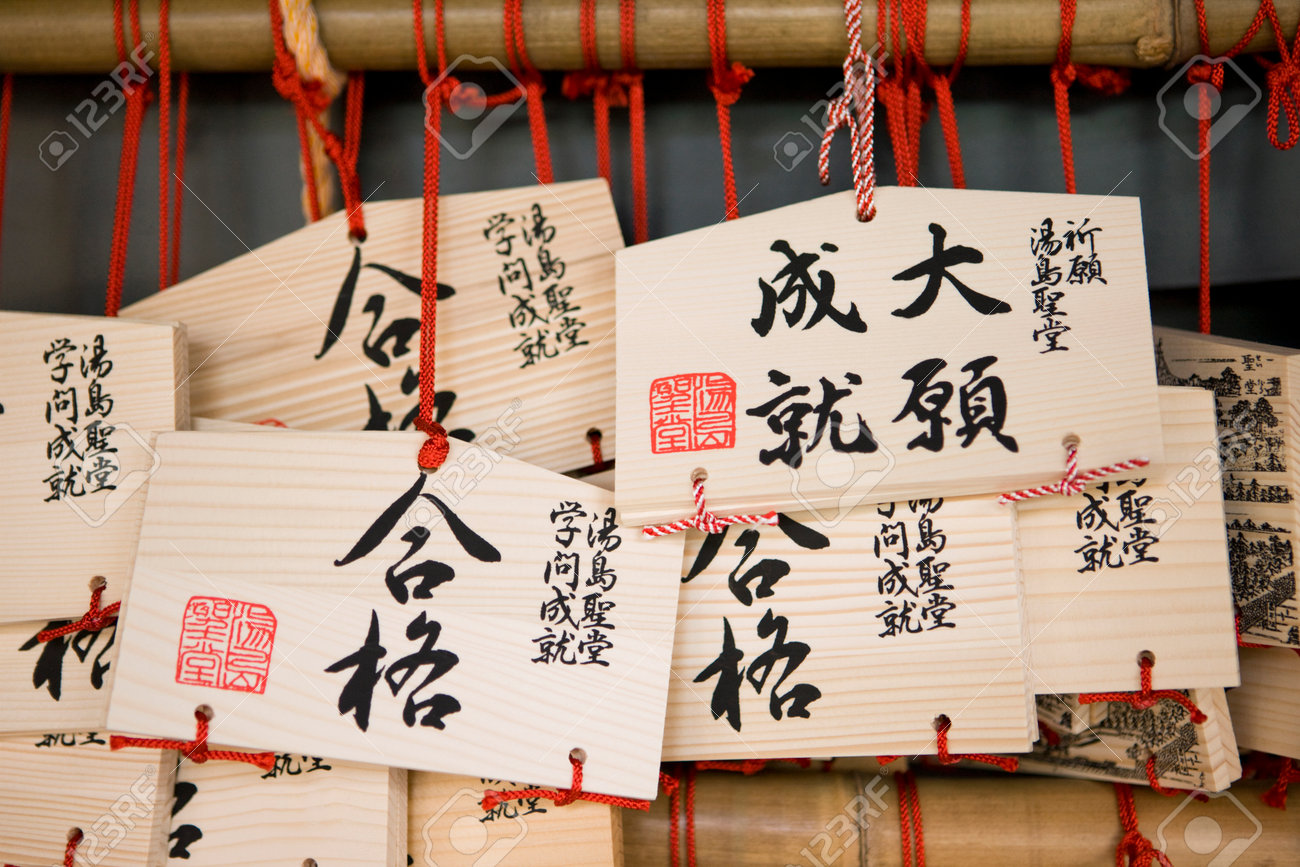 祈願
湯島聖堂
大願
成就
湯島聖堂
湯島聖堂
学問成就
合格
湯島聖堂
学問成就
合格
湯島聖堂
湯島聖堂
学問成就
湯島聖堂
学問成就
合格
聖堂
成就
聖堂
123RF